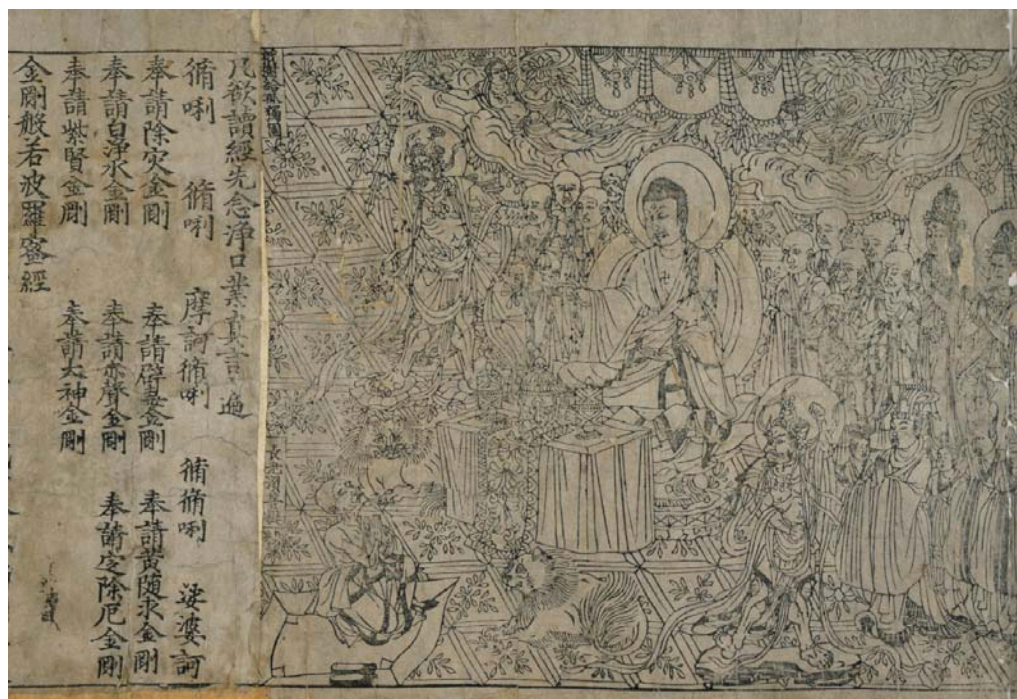 祇樹給孤獨園
長老須菩提
凡欲讀經先念淨口業真言 遍
脩唎 脩唎 摩訶脩唎 脩脩唎 娑婆訶
奉請除灾金剛 奉請辟毒金剛 奉請黃隨求金剛
奉請白淨水金剛 奉請赤聲金剛 奉請定除厄金剛
奉請紫賢金剛 奉請大神金剛
金剛般若波羅蜜經